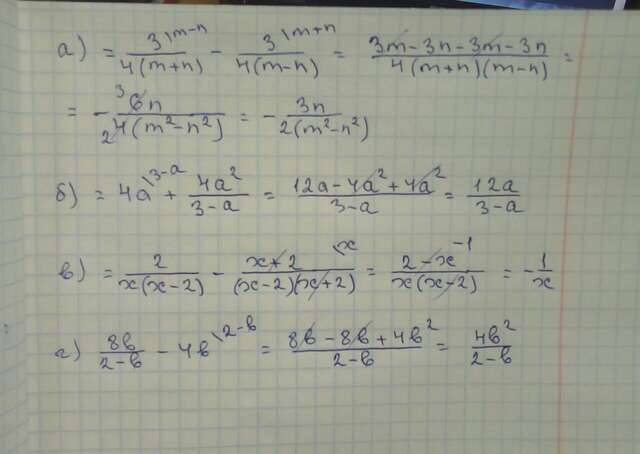 а) = 3\m-n / 4(m+n) - 3\m+n / 4(m-n) = 3m - 3n - 3m - 3n / 4(m+n)(m-n) =
= - 3 6n / 2 4(m²-n²) = - 3n / 2(m²-n²)
б) = 4a\3-a + 4a² / 3-a = 12a - 4a² + 4a² / 3-a = 12a / 3-a
в) = 2 / x(x-2) - x+2 \x / (x-2)(x+2) = 2-x -1 / x(x-2) = - 1 / x
г) 8b / 2-b - 4b\2-b = 8b - 8b + 4b² / 2-b = 4b² / 2-b